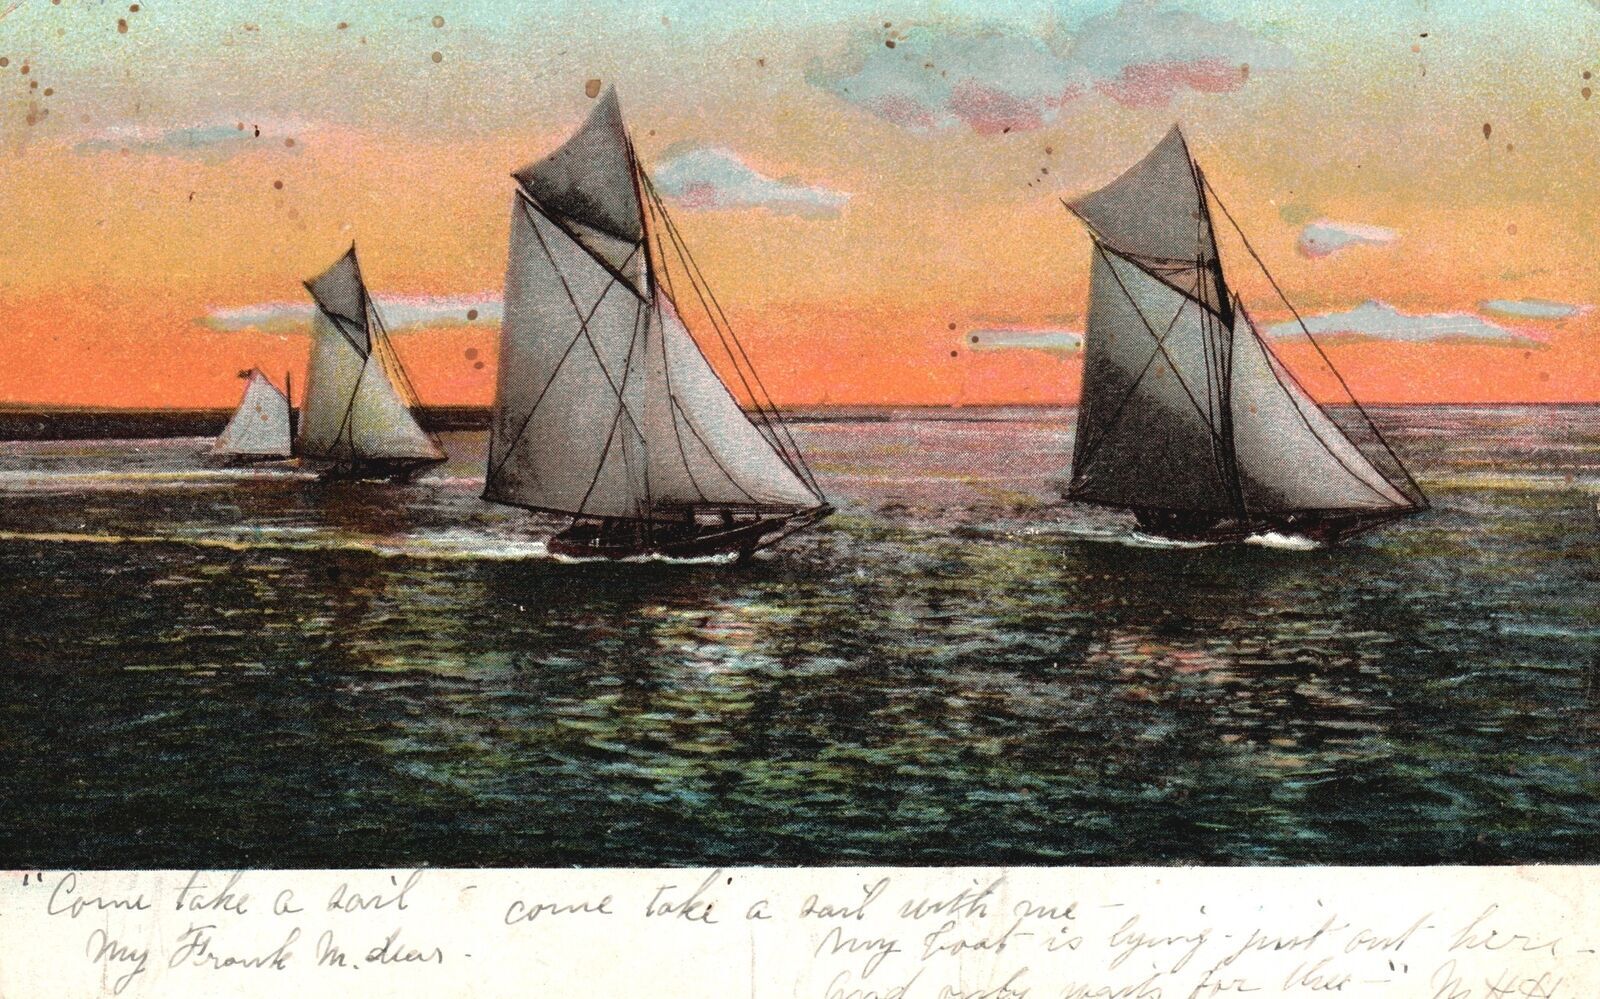 "Come take a sail - come take a sail with me -
My Frank M. dear -
My boat is lying - just out here -
And only waits for thee -" M H H